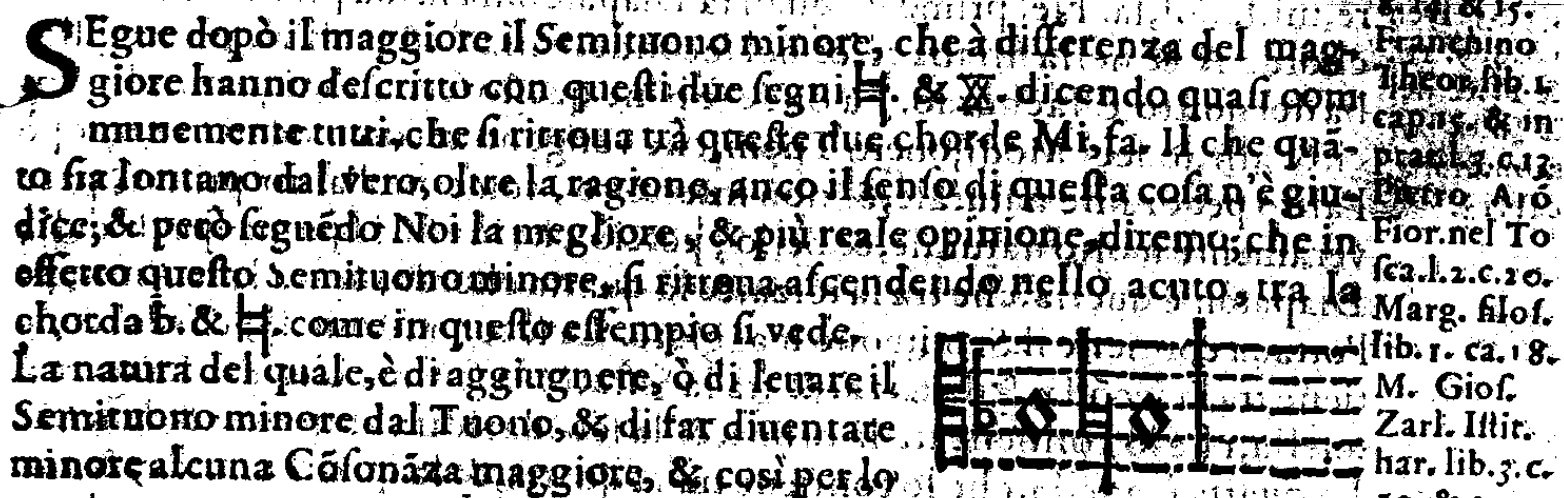 SEgue dopò il maggiore il Semituono minore, che à differenza del mag-
giore hanno deſcritto con queſti due ſegni ♮. & ※. dicendo quaſi com
munemente tutti, che ſi ritroua trà queſte due chorde Mi, fa. Il che quā-
to ſia lontano dal vero, oltre la ragione, anco il ſenſo di queſta coſa n'è giu-
dice; & però ſeguēdo Noi la megliore, & più reale opinione, diremo; che in
effetto queſto Semituono minore, ſi ritroua aſcendendo nello acuto, tra la
chorda b. & ♮. come in queſto eſſempio ſi vede.
La natura del quale, è di aggiugnere, ò di leuare il
Semituono minore dal Tuono, & di far diuentare
minore alcuna Cōſonāza maggiore, & così per lo
& 15.
Franchino
Theor. lib. 1.
cap. & in
c. 13.
Pietro Aró
Fior. nel To
ſca. l. 2. c. 20.
Marg. filoſ.
lib. 1. ca. 18.
M. Gioſ.
Zarl. Iſtit.
har. lib. 3. c.